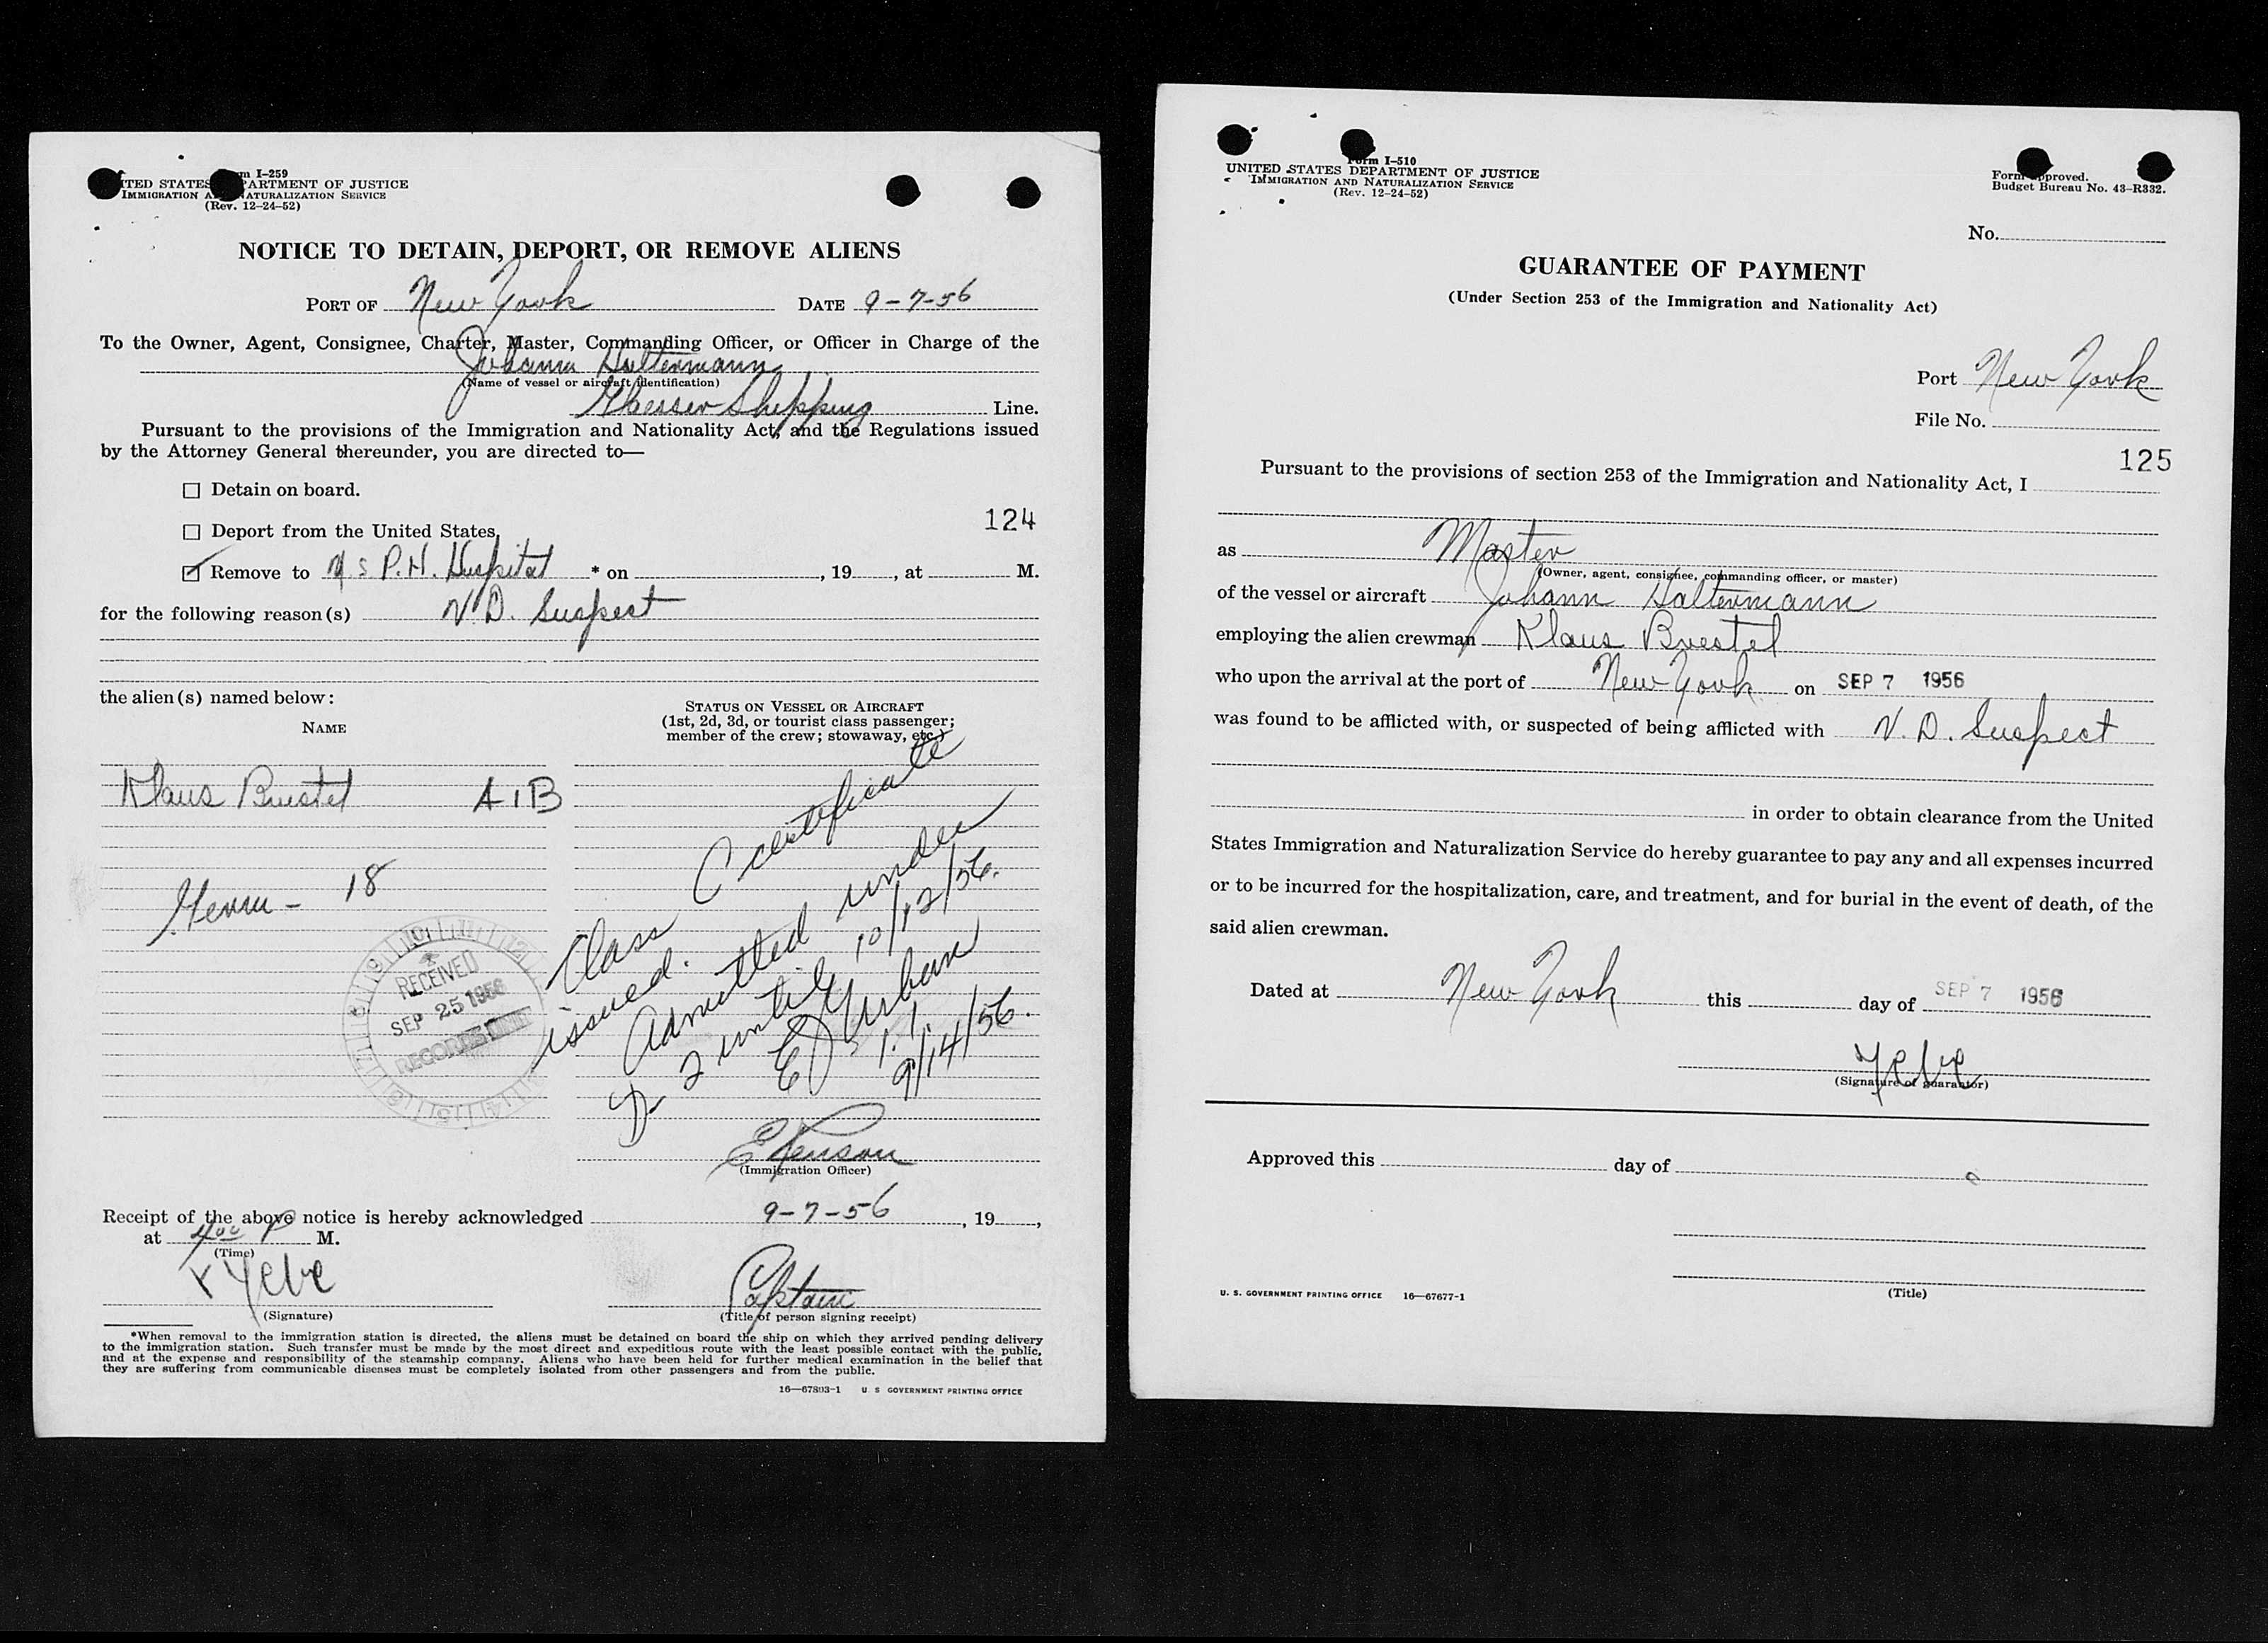 Form I-259
UNITED STATES DEPARTMENT OF JUSTICE
IMMIGRATION AND NATURALIZATION SERVICE
(Rev. 12-24-52)
NOTICE TO DETAIN, DEPORT, OR REMOVE ALIENS
PORT OF New York DATE 9-7-56
To the Owner, Agent, Consignee, Charter, Master, Commanding Officer, or Officer in Charge of the
Johann Haltermann
(Name of vessel or aircraft identification)
Shipping Line.
Pursuant to the provisions of the Immigration and Nationality Act, and the Regulations issued
by the Attorney General thereunder, you are directed to—
☐ Detain on board.
124
☐ Deport from the United States
☑ Remove to U S P.H. Hospital * on , 19 , at M.
for the following reason(s) V.D. Suspect
the alien(s) named below:
NAME
STATUS ON VESSEL OR AIRCRAFT
(1st, 2d, 3d, or tourist class passenger;
member of the crew; stowaway, etc.)
Klaus Bruestel A1B
Germ - 18
RECEIVED
SEP 25 1956
Class C certificate
issued.
Admitted under
D-2 until 10/12/56.
EJ Urban
I.I.
9/14/56.
(Immigration Officer)
Receipt of the above notice is hereby acknowledged 9-7-56, 19 ,
at 4:00 P M.
(Time)
X
(Signature)
Captain
(Title of person signing receipt)
*When removal to the immigration station is directed, the aliens must be detained on board the ship on which they arrived pending delivery
to the immigration station. Such transfer must be made by the most direct and expeditious route with the least possible contact with the public,
and at the expense and responsibility of the steamship company. Aliens who have been held for further medical examination in the belief that
they are suffering from communicable diseases must be completely isolated from other passengers and from the public.
16—67803-1 U. S GOVERNMENT PRINTING OFFICE
Form I-510
UNITED STATES DEPARTMENT OF JUSTICE
IMMIGRATION AND NATURALIZATION SERVICE
(Rev. 12-24-52)
Form approved.
Budget Bureau No. 43-R332.
No.
GUARANTEE OF PAYMENT
(Under Section 253 of the Immigration and Nationality Act)
Port New York
File No.
125
Pursuant to the provisions of section 253 of the Immigration and Nationality Act, I
as Master
(Owner, agent, consignee, commanding officer, or master)
of the vessel or aircraft Johann Haltermann
employing the alien crewman Klaus Bruestel
who upon the arrival at the port of New York on SEP 7 1956
was found to be afflicted with, or suspected of being afflicted with V. D. Suspect
in order to obtain clearance from the United
States Immigration and Naturalization Service do hereby guarantee to pay any and all expenses incurred
or to be incurred for the hospitalization, care, and treatment, and for burial in the event of death, of the
said alien crewman.
Dated at New York this day of SEP 7 1956
(Signature of guarantor)
Approved this day of
(Title)
U. S. GOVERNMENT PRINTING OFFICE 16—67677-1